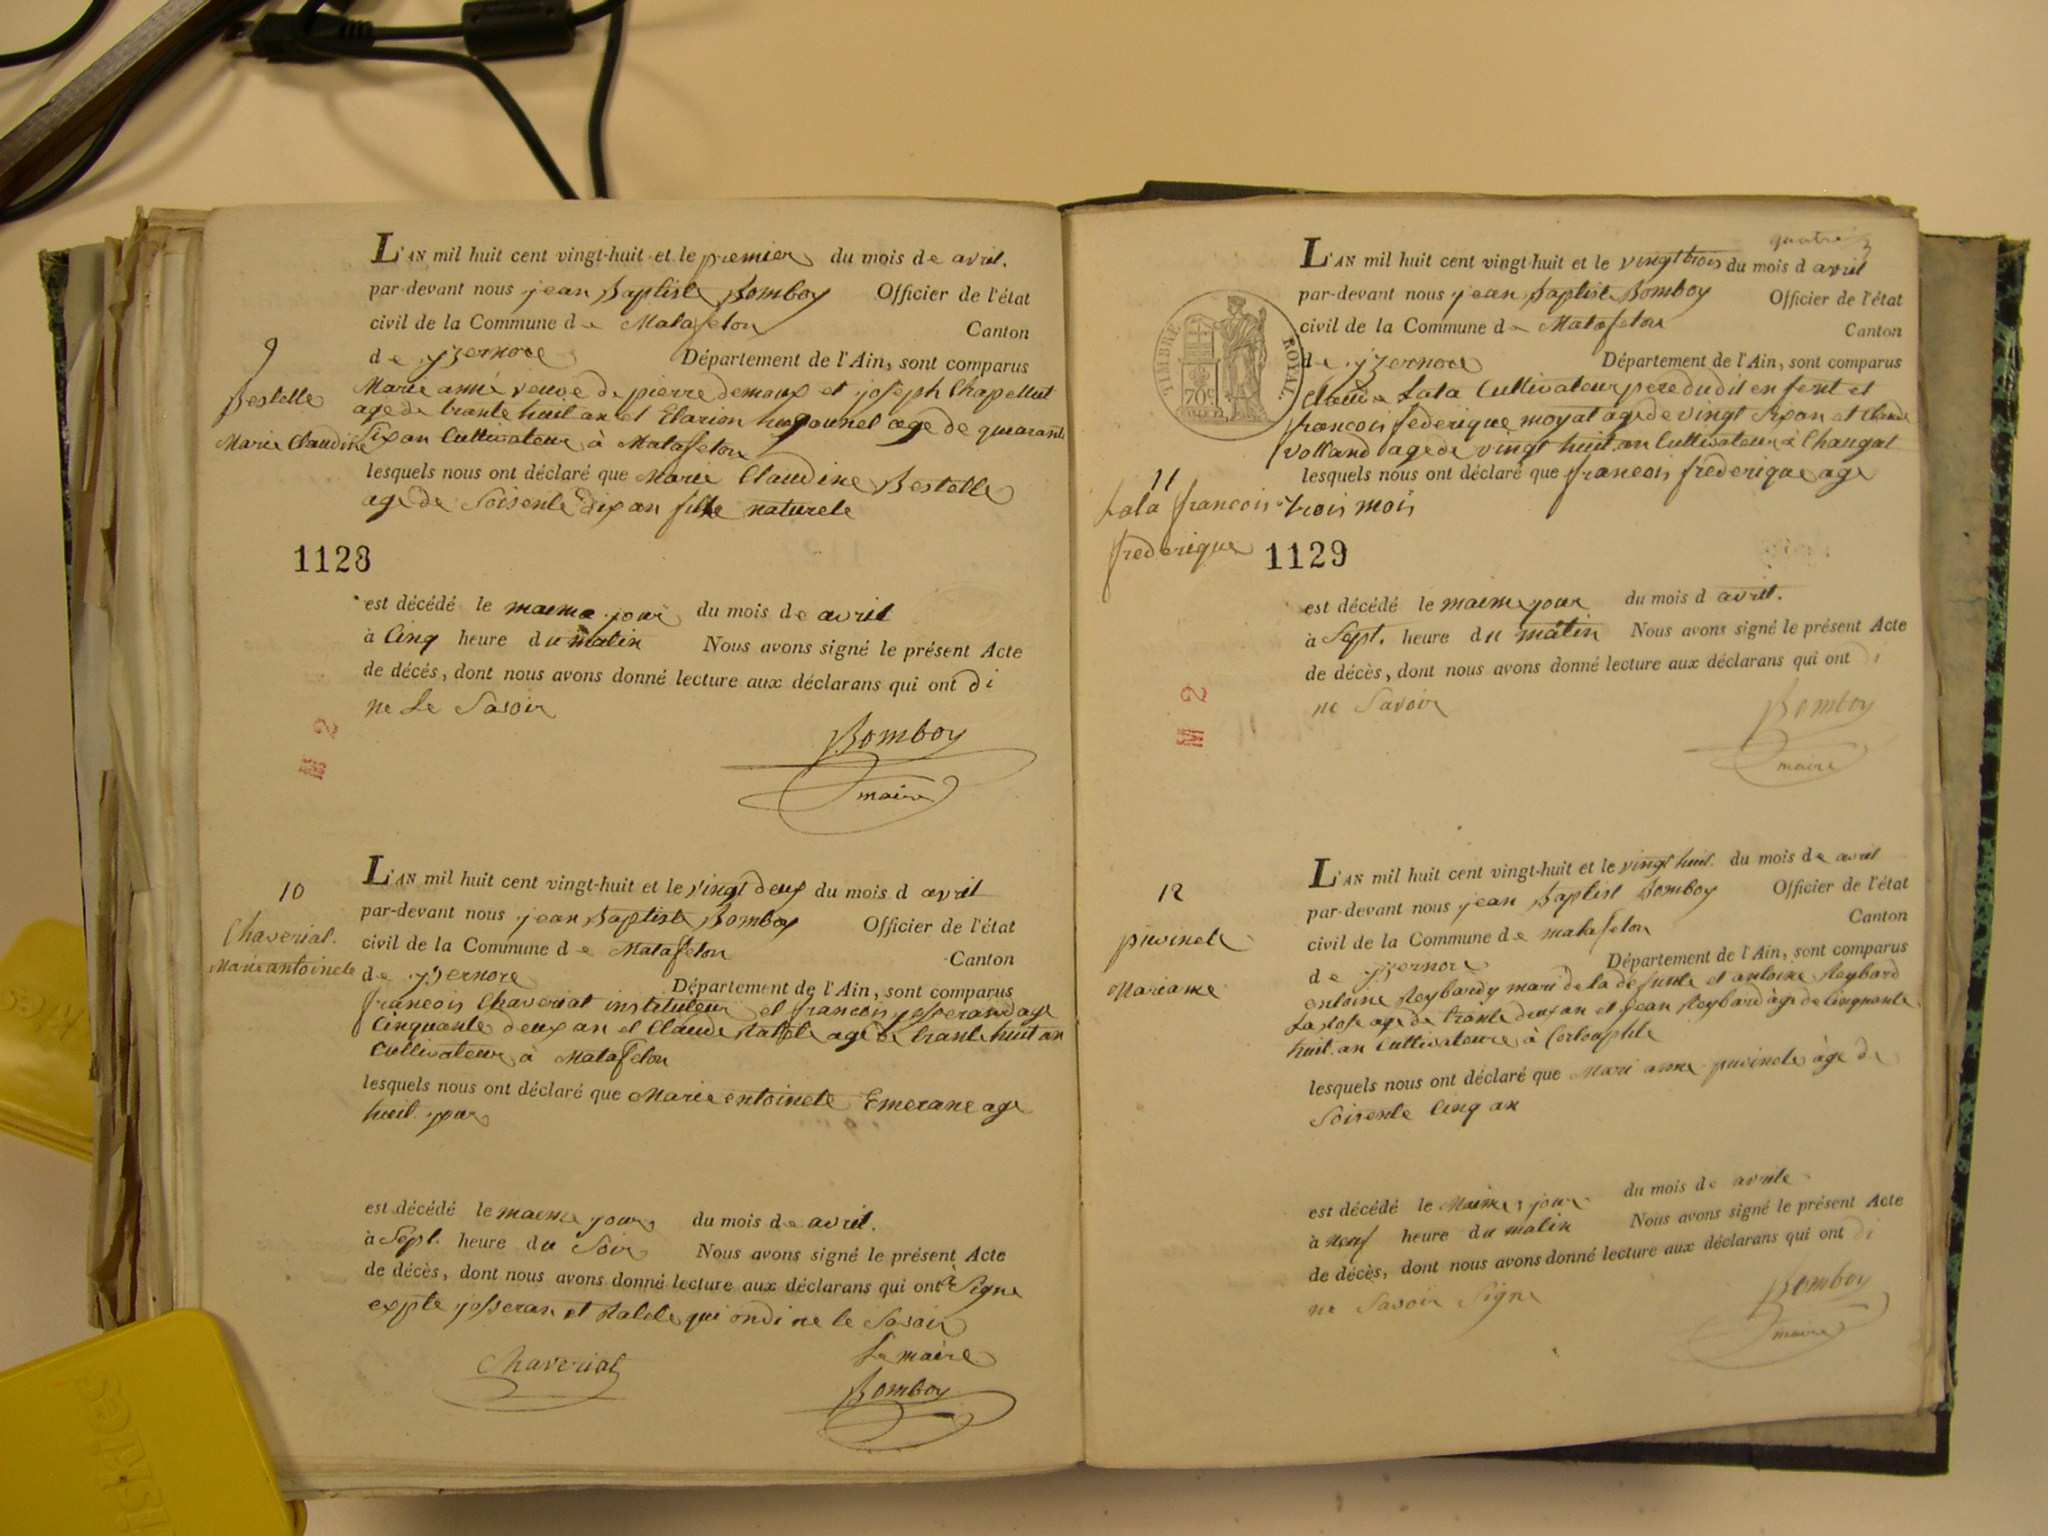 L'AN mil huit cent vingt-huit et le premier du mois de avril.
par-devant nous jean Baptiste Bomboy Officier de l'état
civil de la Commune de Matafelon Canton
de yzernore Département de l'Ain, sont comparus
9
Bestelle
Marie Claudine
Marie anné veuve de pierre demoux et joseph Chapellut
age de trante huit an et Clarion hugounet age de quarante
Six an Cultivateur à Matafelon
lesquels nous ont déclaré que Marie Claudine Bestelle
age de Soisente dix an fille naturele
1128
est décédé le maime jour du mois de avril
à Cinq heure du matin Nous avons signé le présent Acte
de décés, dont nous avons donné lecture aux déclarans qui ont di
ne Le Savoir
Bomboy
maire
M 2
L'AN mil huit cent vingt-huit et le vingt deux du mois d avril
par-devant nous jean Baptiste Bomboy Officier de l'état
civil de la Commune de Matafelon Canton
de yzernore Département de l'Ain, sont comparus
10
Chaveriat.
Marie antoinete
francois Chaveriat instituteur et francois josserand age
Cinquante deux an et Claude age de trante huit an
Cultivateur à Matafelon
lesquels nous ont déclaré que Marie entoinete Emerane age
huit jour
est décédé le maime jour du mois de avril.
à Sept. heure du Soir Nous avons signé le présent Acte
de décès, dont nous avons donné lecture aux déclarans qui ont Signe
expte josseran et qui ondi ne le Savoir
Chaveriat
Le maire
Bomboy
quatre
L'AN mil huit cent vingt-huit et le vingt trois du mois d avril
par-devant nous jean Baptiste Bomboy Officier de l'état
civil de la Commune de Matafelon Canton
de yzernore Département de l'Ain, sont comparus
TIMBRE ROYAL.
70c
Claude Lala Cultivateur pere dudit enfent et
francois federique moyat age de vingt Six an et Claude
volland age de vingt huit an Cultivateur à Changat
lesquels nous ont déclaré que francois frederique age
trois mois
11
Lala francois
frederique
1129
est décédé le maime jour du mois d avril.
à Sept. heure du matin Nous avons signé le présent Acte
de décès, dont nous avons donné lecture aux déclarans qui ont di
ne Savoir
Bomboy
maire
M 2
L'AN mil huit cent vingt-huit et le vingt huit. du mois de avril
par-devant nous jean Baptist Bomboy Officier de l'état
civil de la Commune de matafelon Canton
de yzernore Département de l'Ain, sont comparus
12
pivinele
Mariame
entoine Reybardy mari de la defunte et antoine Reybard
age de trante deux an et jean Reybard àge de Cinquante
huit. an Cultivateure à
lesquels nous ont déclaré que Mari anne pivinele àge de
Soisente Cinq an
est décédé le Maime jour du mois de avrile
à neuf heure du matin Nous avons signé le présent Acte
de décès, dont nous avons donné lecture aux déclarans qui ont di
ne Savoir Signe
Bomboy
maire